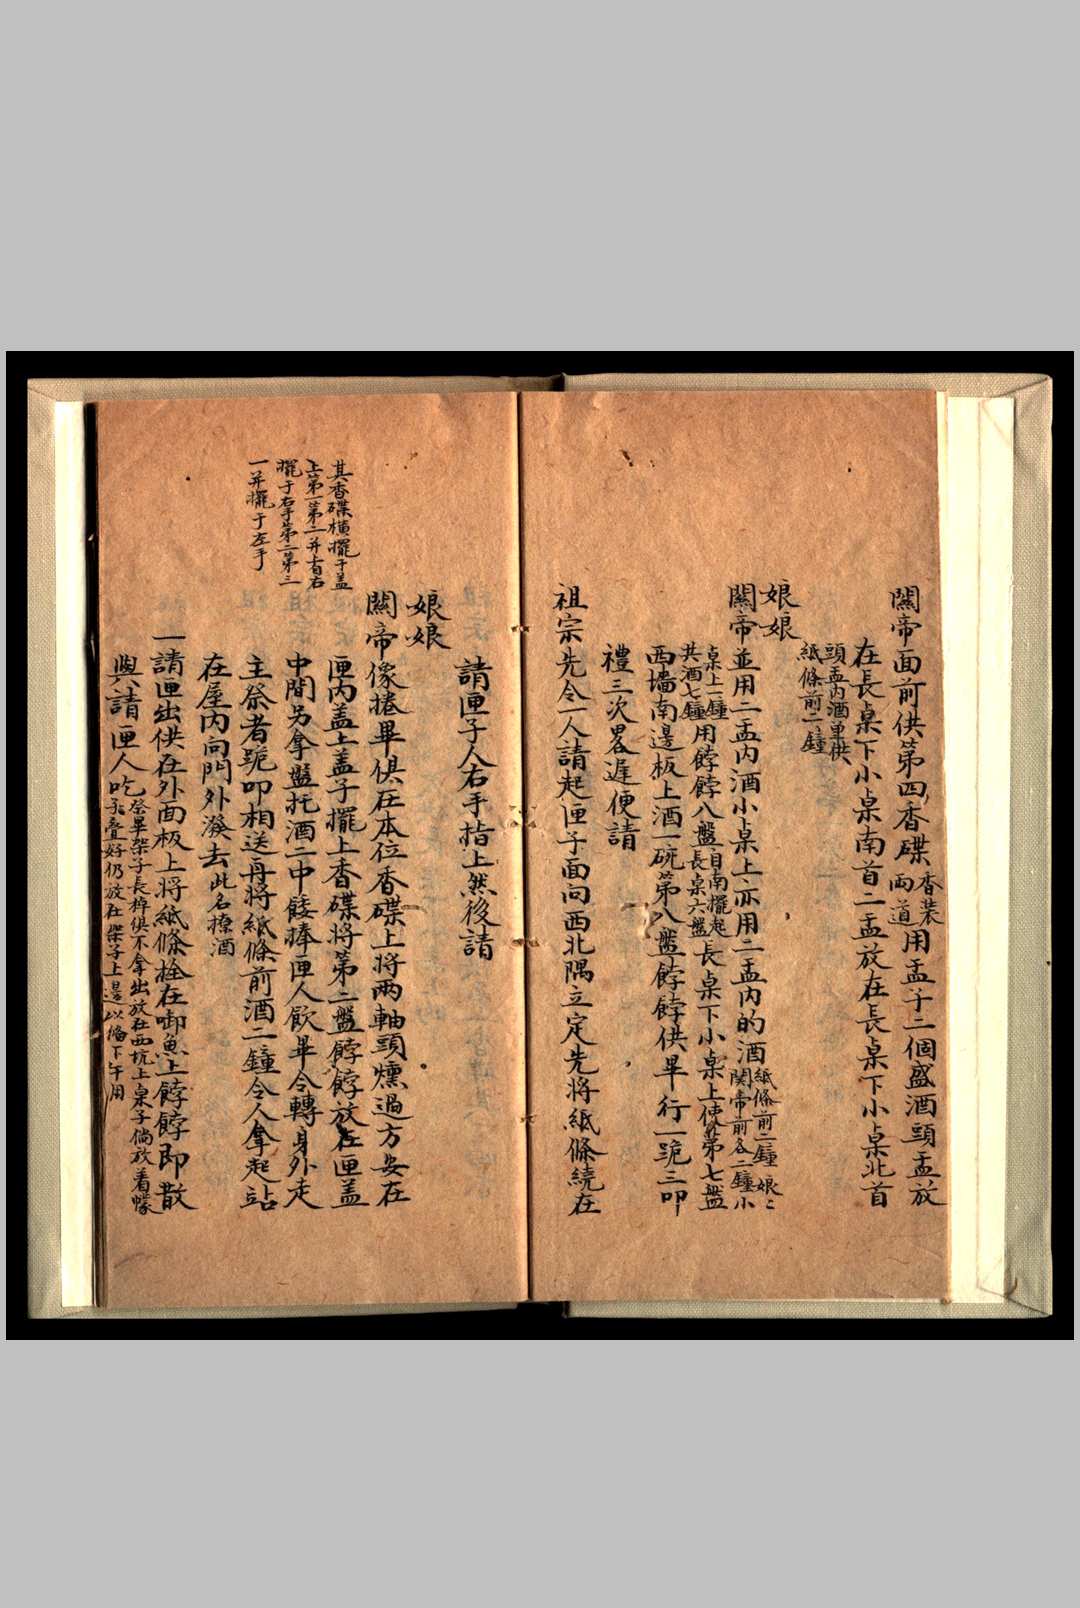 關帝面前供第四香碟香裝兩道用盂子二個盛酒頭盂放
在長桌下小桌南首二盂放在長桌下小桌北首
頭盂內酒單供
紙條前二鐘
娘娘
關帝並用二盂內酒小桌上亦用二盂內的酒紙條前二鐘娘〻關帝前各二鐘小
桌上一鐘共酒七鐘用餑餑八盤自南擺起長桌六盤長桌下小桌上使第七盤
西墻南邊板上酒一碗第八盤餑餑供畢行一跪三叩
禮三次畧遲便請
祖宗先令一人請起匣子面向西北隅立定先將紙條繞在
請匣子人右手指上然後請
娘娘
關帝像捲畢俱在本位香碟上將兩軸頭燻過方安在
匣內蓋上蓋子擺上香碟將第二盤餑餑放在匣蓋
其香碟橫擺于蓋
上第一第二并首右
擺于右手第二第三
一并擺于左手
中間另拿盤托酒二中餧捧匣人飲畢令轉身外走
主祭者跪叩相送再將紙條前酒二鐘令人拿起站
在屋內向門外潑去此名撩酒
一請匣出供在外面板上將紙條栓在啣魚上餑餑即散
與請匣人吃祭畢架子長桿俱不拿出放在西坑上桌子倘放着幪
子疊好仍放在架子上邊以俻下午用